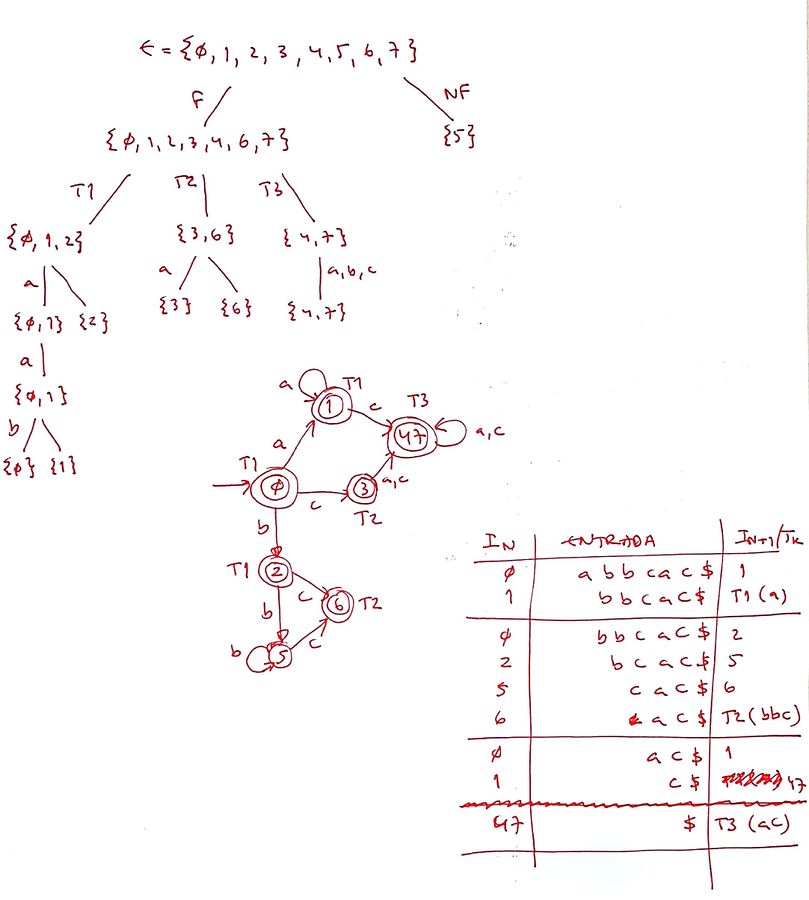 E = {φ, 1, 2, 3, 4, 5, 6, 7}
F NF
{φ, 1, 2, 3, 4, 6, 7} {5}
T1 T2 T3
{φ, 1, 2} {3, 6} {4, 7}
a a a, b, c
{φ, 1} {2} {3} {6} {4, 7}
a
{φ, 1}
b
{φ} {1}
a T1
1 c T3
47 a, c
a
T1
φ c 3 a, c
T2
b
T1 2 c
6 T2
b
b 5 c
IN ENTRADA IN+1/TK
φ a b b c a c $ 1
1 b b c a c $ T1 (a)
φ b b c a c $ 2
2 b c a c $ 5
5 c a c $ 6
6 a c $ T2 (bbc)
φ a c $ 1
1 c $ 47
47 $ T3 (ac)